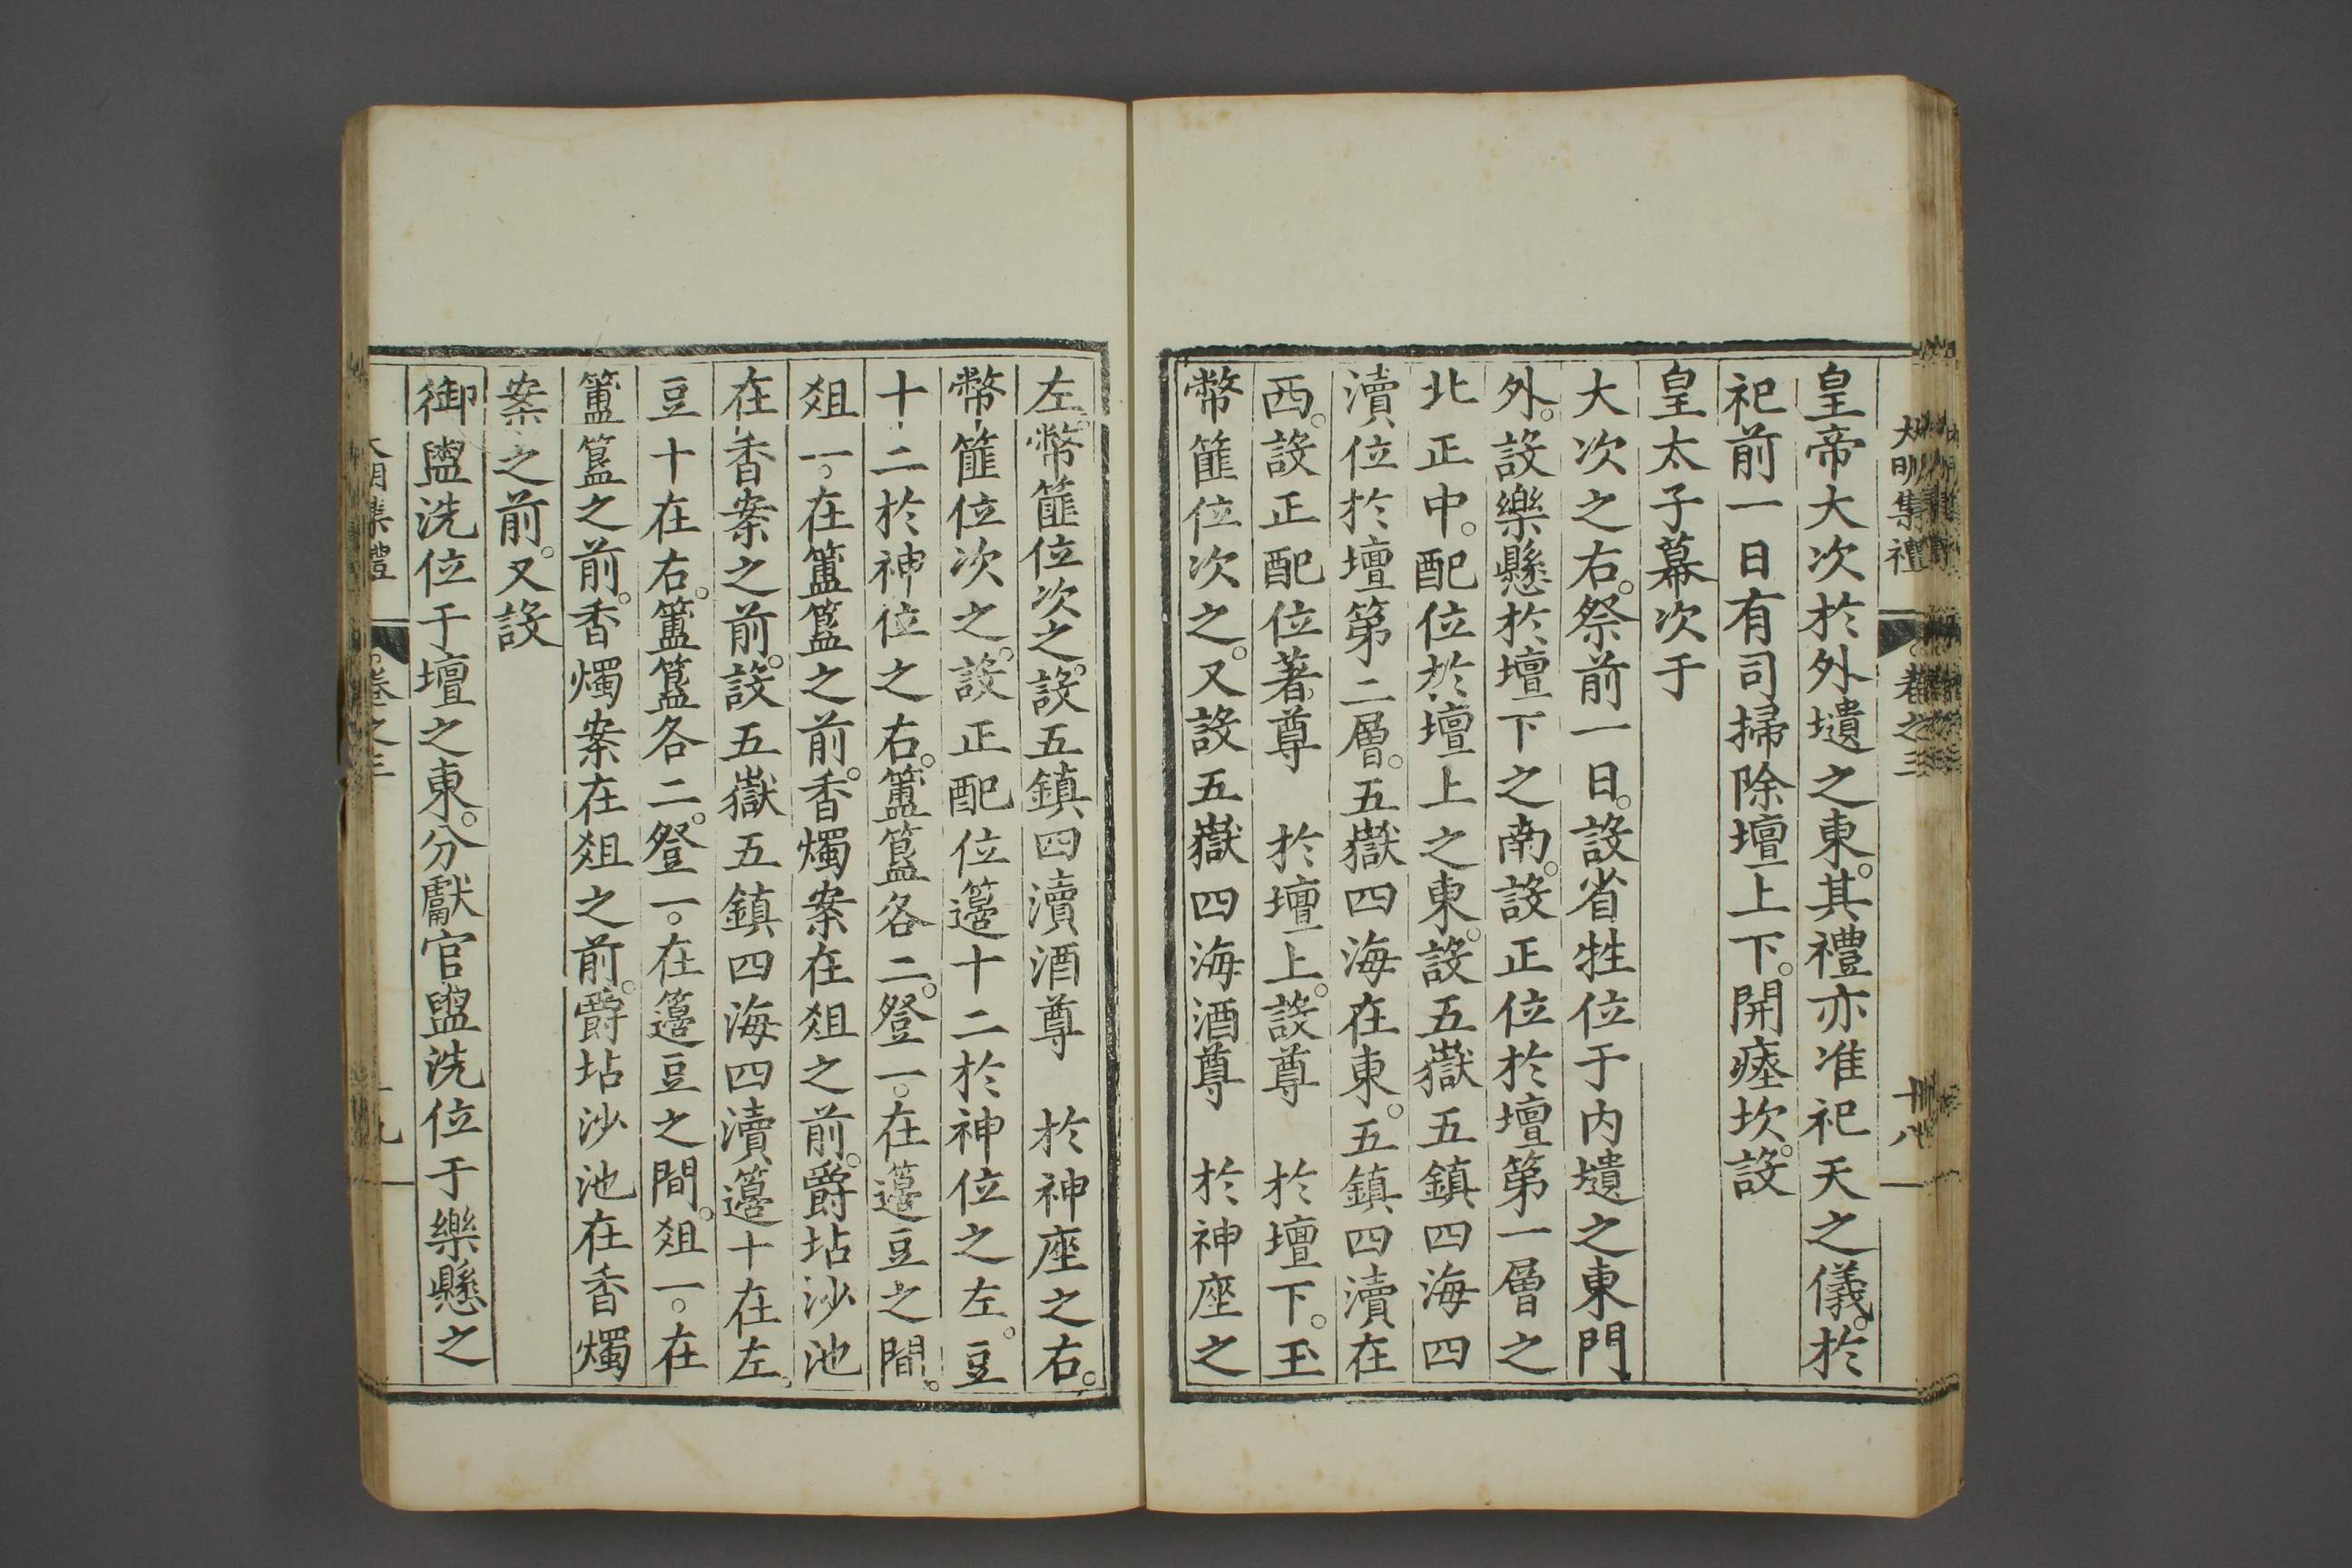 大明集禮 卷之三 十八
皇帝大次於外壝之東。其禮亦准祀天之儀。於
祀前一日有司掃除壇上下。開瘞坎。設
皇太子幕次于
大次之右。祭前一日。設省牲位于内壝之東門
外。設樂懸於壇下之南。設正位於壇第一層之
北正中。配位於壇上之東。設五嶽五鎮四海四
瀆位於壇第二層。五嶽四海在東。五鎮四瀆在
西。設正配位著尊 於壇上。設尊 於壇下。玉
幣篚位次之。又設五嶽四海酒尊 於神座之
左。幣篚位次之。設五鎮四瀆酒尊 於神座之右。
幣篚位次之。設正配位籩十二於神位之左。豆
十二於神位之右。簠簋各二。登一。在籩豆之間。
俎一。在簠簋之前。香燭案在俎之前。爵坫沙池
在香案之前。設五嶽五鎮四海四瀆籩十在左。
豆十在右。簠簋各二。登一。在籩豆之間。俎一。在
簠簋之前。香燭案在俎之前。爵坫沙池在香燭
案之前。又設
御盥洗位于壇之東。分獻官盥洗位于樂懸之
大明集禮 卷之三 十九